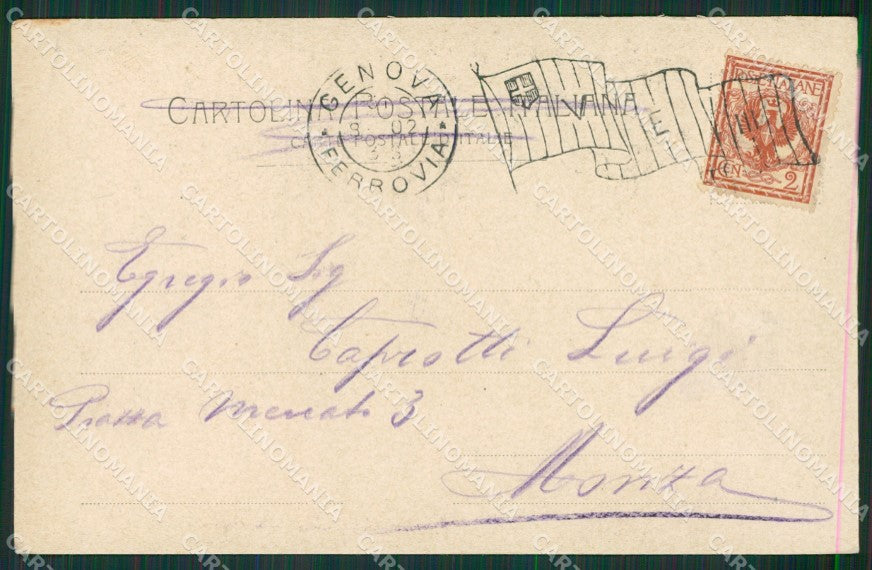 CARTOLINA POSTALE ITALIANA
CARTE POSTALE D'ITALIE
GENOVA
8 02
FERROVIA
V E III
POSTE ITALIANE
CEN 2
Egregio Sig
Caprotti Luigi
Piazza Mercato 3
Monza
CARTOLINOMANIA